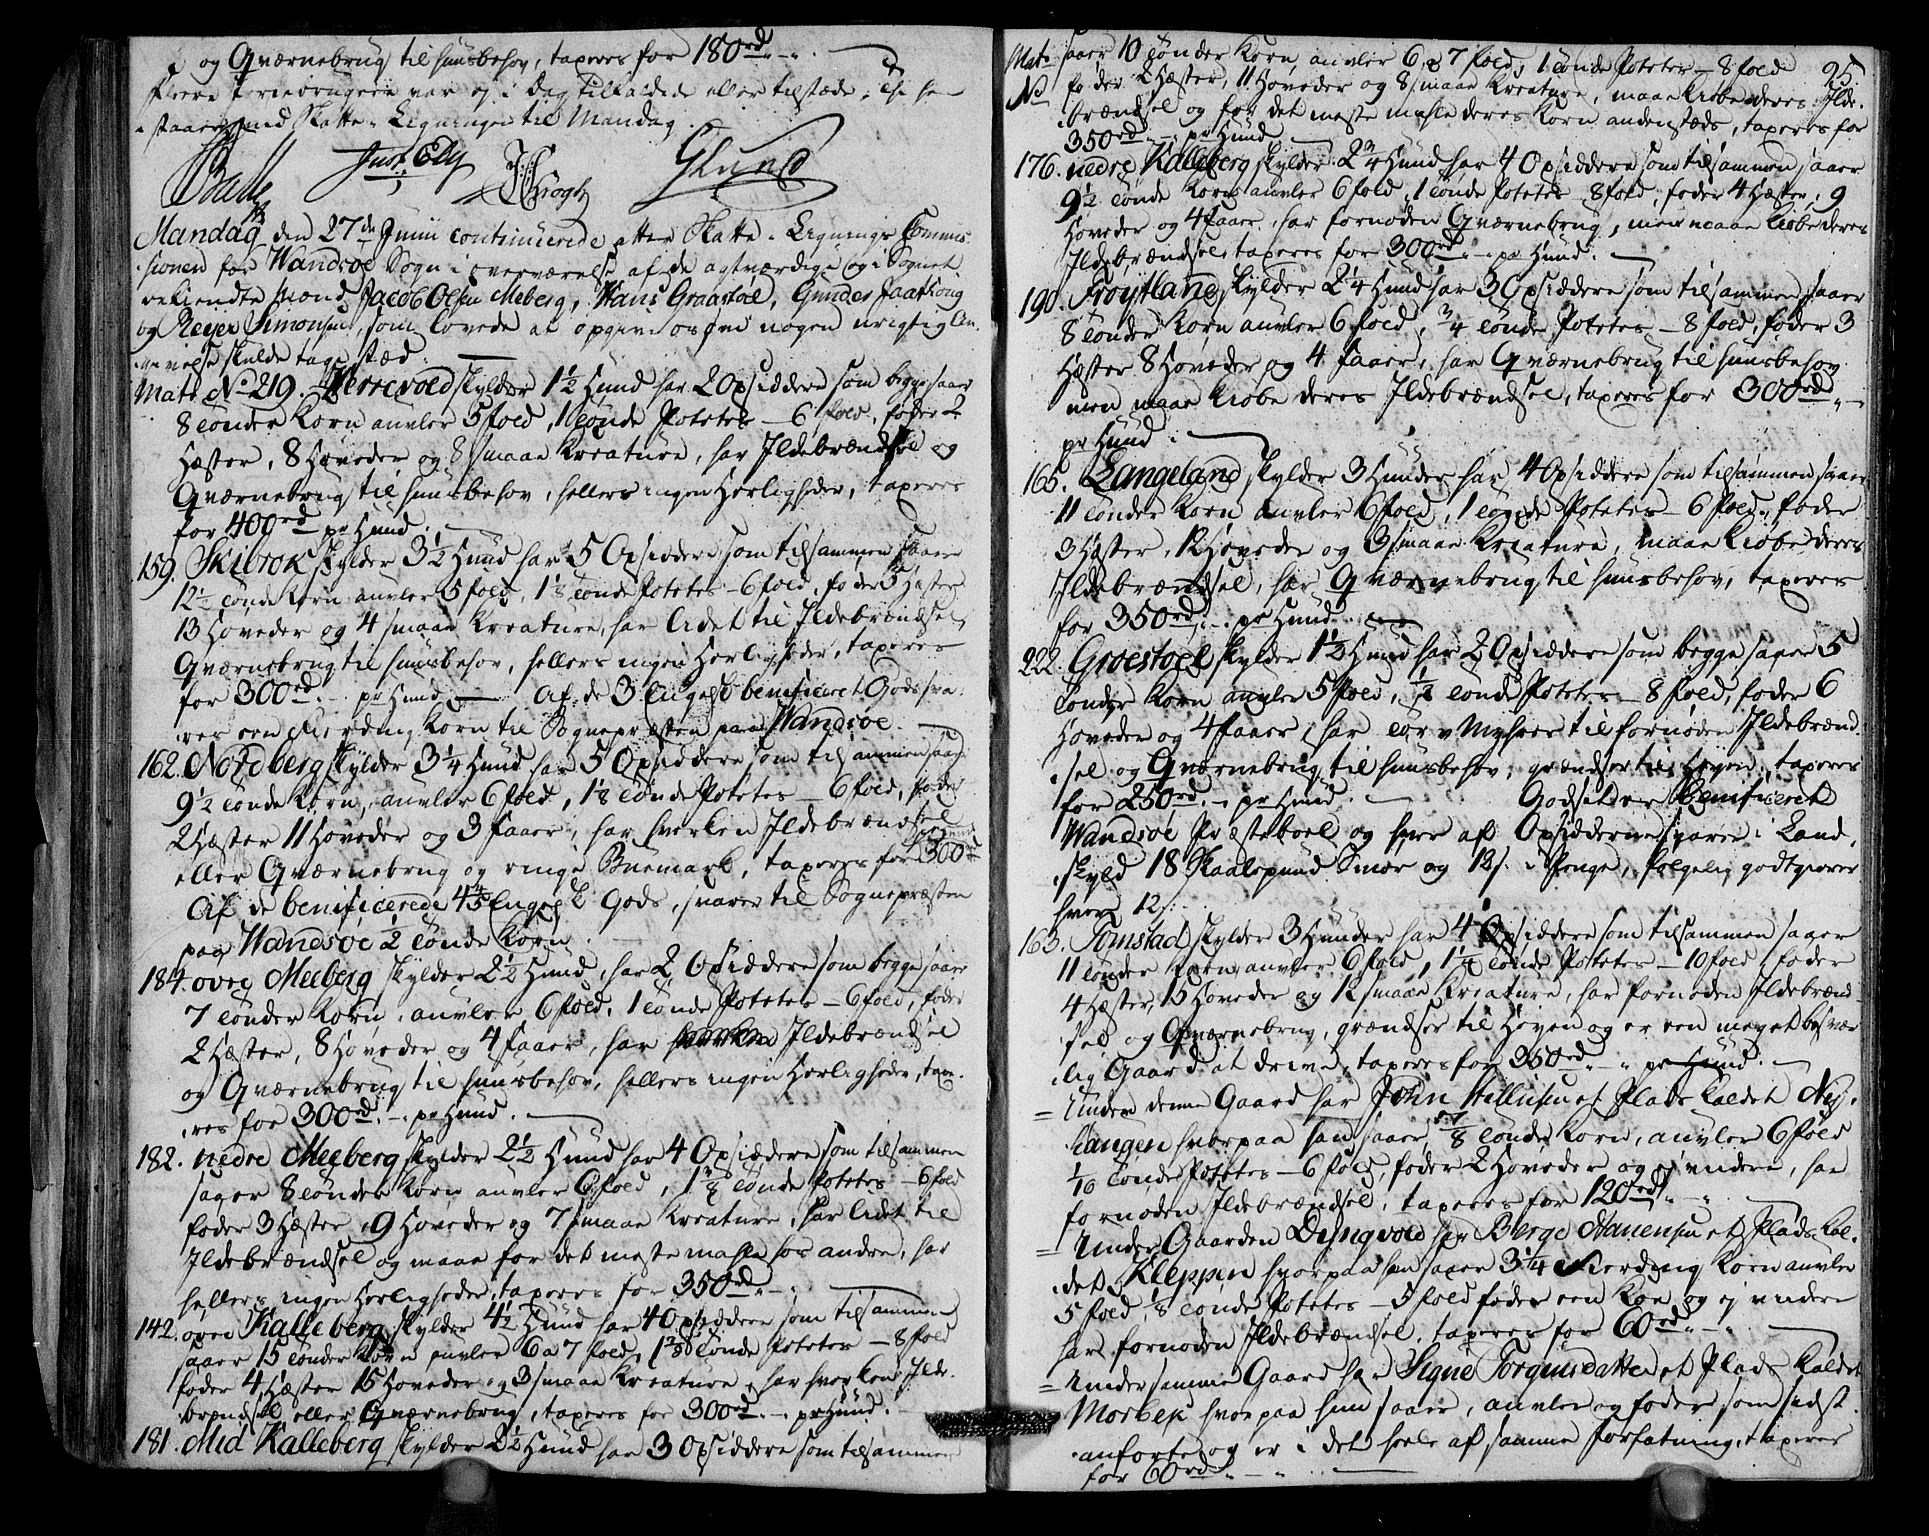 og Qværnebrug til huusbehov, taxeres for 180rd „-„.
Fleere Feriebrugere var ej i dag tilkaldede eller tilstæde;
staaer med Skatte-Ligningen til Mandag.
Balle Just Ely JKrogh GLund
Mandag den 27de Junii continuerede atter Skatte-Lignings Commis-
sionen for Wandsøe Sogn i overværelse af de agtværdige og i Sognet
bekiendte Mænd Jacob Olsen Meberg, Hans Graastøel, Gunder Jaathoug
og Reyer Simonsen, som lovede at opgive os om nogen urigtig An-
givelse skulde tage stæd.
Matr No 219. Herrevold skylder 1½ Hund har 2 Opsiddere som begge saaer
8 tønder Korn auvler 5 fold, 1 tønde Potetes – 6 fold, føder 2
Hæster, 8 Høveder og 8 smaae Kreature, har Ildebrændsel og
Qværnebrug til huusbehov, hellers ingen Herligheder, taxeres
for 400rd pr Hund.
159. Skibrok skylder 3½ Hund har 5 Opsiddere som tilsammen saaer
12½ tønde Korn auvler 5 fold, 1⅛ tønde Potetes – 6 fold, føder 5 Hæster
13 Høveder og 4 smaae Kreature, har lidet til Ildebrændsel,
Qværnebrug til huusbehov, hellers ingen Herligheder, taxeres
for 300rd „-„ pr Hund. Af de 3 Engelsk benificeret Gods sva-
res een Fierding Korn til Sognepræsten paa Wandsøe.
162. Nordberg skylder 3¼ Hund har 5 Opsiddere som tilsammen saaer
9½ tønde Korn, auvler 6 fold, 1⅛ tønde Potetes – 6 fold, føder
2 Hæster 11 Høveder og 3 Faaer, har hverken Ildebrændsel
eller Qværnebrug og ringe Buemark, taxeres for 300rd pr Hund
Af de benificerede 4⅘ Engelsk Gods, svares til Sognepræsten
paa Wandsøe ½ tønde Korn.
184. øvre Meeberg skylder 2½ Hund, har 2 Opsiddere som begge saaer
7 tønder Korn, auvler 6 fold, 1 tønde Potetes – 6 fold, føder
2 Hæster, 8 Høveder og 4 Faaer, har Ildebrændsel
og Qværnebrug til huusbehov, hellers ingen Herligheder, taxe-
res for 300rd „-„ pr Hund.
182. nedre Meeberg skylder 2½ Hund har 4 Opsiddere som tilsammen
saaer 8 tønder Korn auvler 6 fold, 1⅜ tønde Potetes – 6 fold
føder 3 Hæster, 9 Høveder og 7 smaae Kreature, har lidet til
Ildebrændsel og maae for det meste mahle hos andre, har
hellers ingen Herligheder, taxeres for 350rd „-„.
142. øvre Kalleberg skylder 4½ Hund har 4 Opsiddere som tilsammen
saaer 15 tønder Korn auvler 6 a 7 fold, 1⅜ tønde Potetes – 8 fold
føder 4 Hæster 15 Høveder og 3 smaae Kreature, har hverken Ilde-
brændsel eller Qværnebrug, taxeres for 300rd „-„ pr Hund.
181. Mid Kalleberg skylder 2½ Hund har 3 Opsiddere som tilsammen
25.
Matr No saaer 10 tønder Korn, auvler 6 a 7 fold, 1 tønde Potetes – 8 fold
føder 2 Hæster, 11 Høveder og 8 smaae Kreature, maae kiøbe deres Ilde-
brændsel og for det meste mahle deres Korn andenstæds, taxeres for
350rd „-„ pr Hund.
176. nedre Kalleberg skylder 2¾ Hund har 4 Opsiddere som tilsammen saaer
9½ tønde Korn auvler 6 fold, 1 tønde Potetes 8 fold, føder 4 Hæster, 9
Høveder og 4 Faaer, har fornøden Qværnebrug, men maae kiøbe deres
Ildebrændsel, taxeres for 300rd „-„ pr Hund.
190. Frøytland skylder 2¼ Hund har 3 Opsiddere som tilsammen saaer
8 tønder Korn auvler 6 fold, ¾ tønde Potetes – 8 fold, føder 3
Hæster 8 Høveder og 4 Faaer, har Qværnebrug til huusbehov
men maae kiøbe deres Ildebrændsel, taxeres for 300rd „-„
pr Hund.
165. Langeland skylder 3 Hunder har 4 Opsiddere som tilsammen saaer
11 tønder Korn auvler 6 fold, 1 tønde Potetes – 6 fold, føder
3 Hæster, 12 Høveder og 3 smaae Kreature, maae kiøbe deres
Ildebrændsel, har Qværnebrug til huusbehov, taxeres
for 350rd „-„ pr Hund.
222. Groestoel skylder 1½ Hund har 2 Opsiddere som begge saaer 5
tønder Korn auvler 5 fold, ½ tønde Potetes – 8 fold, føder 6
Høveder og 4 Faaer, har torv Myhrer til fornøden Ildebrænd-
sel og Qværnebrug til huusbehov, grændser til Heyen, taxeres
for 250rd „-„ pr Hund. Godset er Benificeret
Wandsøe Præsteboel og hver af Opsidderne svarer i Land-
skyld 18 Skaalspund Smør og 12s. i Penge, følgelig godtgiøres
hver 12s.
163. Tomstad skylder 3 Hunder har 4 Opsiddere som tilsammen saaer
11 tønder Korn auvler 6 fold, 1¼ tønde Potetes – 10 fold, føder
4 Hæster, 15 Høveder og 12 smaae Kreature, har fornøden Ildebrænd-
sel og Qværnebrug, grændser til Heyen og er een meget besvær-
lig Gaard at drive, taxeres for 350rd „-„ pr Hund.
= Under denne Gaard har John Hellusen et Plads kaldet Ny-
hangen hvorpaa han saaer ⅞ tønde Korn, auvler 6 fold
1/16 tønde Potetes – 6 fold, føder 2 Høveder og ej videre, har
fornøden Ildebrændsel, taxeres for 120rd „-„
= Under Gaarden Dyngvold har Berge Hanensen et Plads kal-
det Kleppen hvorpaa han saaer 3¼ Fierding Korn auvler
5 fold, ⅛ tønde Potetes – 5 fold føder een Koe og ej videre
har fornøden Ildebrændsel, taxeres for 60rd „-„
= Under samme Gaard har Signe Torginsdatter et Plads kaldet
Morbek hvorpaa hun saaer, auvler og føder som sidst
anførte og er i det heele af samme Forfatning, taxeres
for 60rd „-„